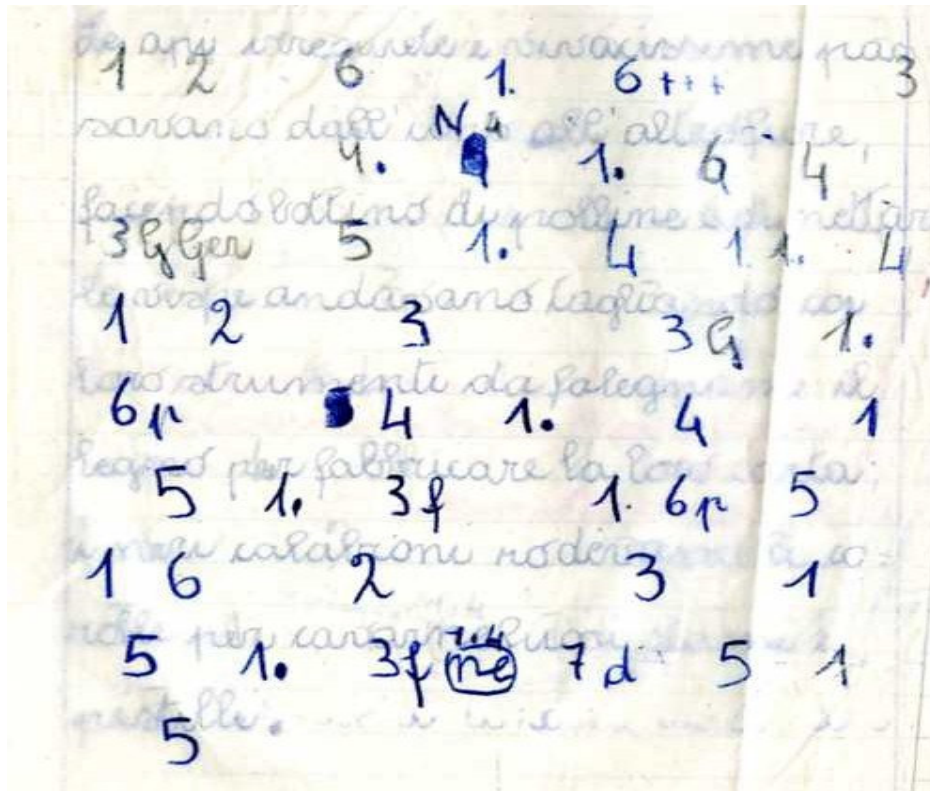 le api irrequiete e vivacissime pas
1 2 6 1. 6+++ 3
savano dall' uno all' altro fiore,
N 4
4. 1. 6 4
facendo bottino di polline e di nettare
3G Ger 5 1. 4 1 1. 4
le vespe andavano tagliando coi
1 2 3 3G 1.
loro strumenti da falegnami il
6p 4 1. 4 1
legno per fabbricare la loro carta;
5 1. 3f 1. 6p 5
i neri calabroni rodevano la co=
1 6 2 3 1
per cavarne fuori
5 1. 3f ne 7d 5 1
pistilli.
5